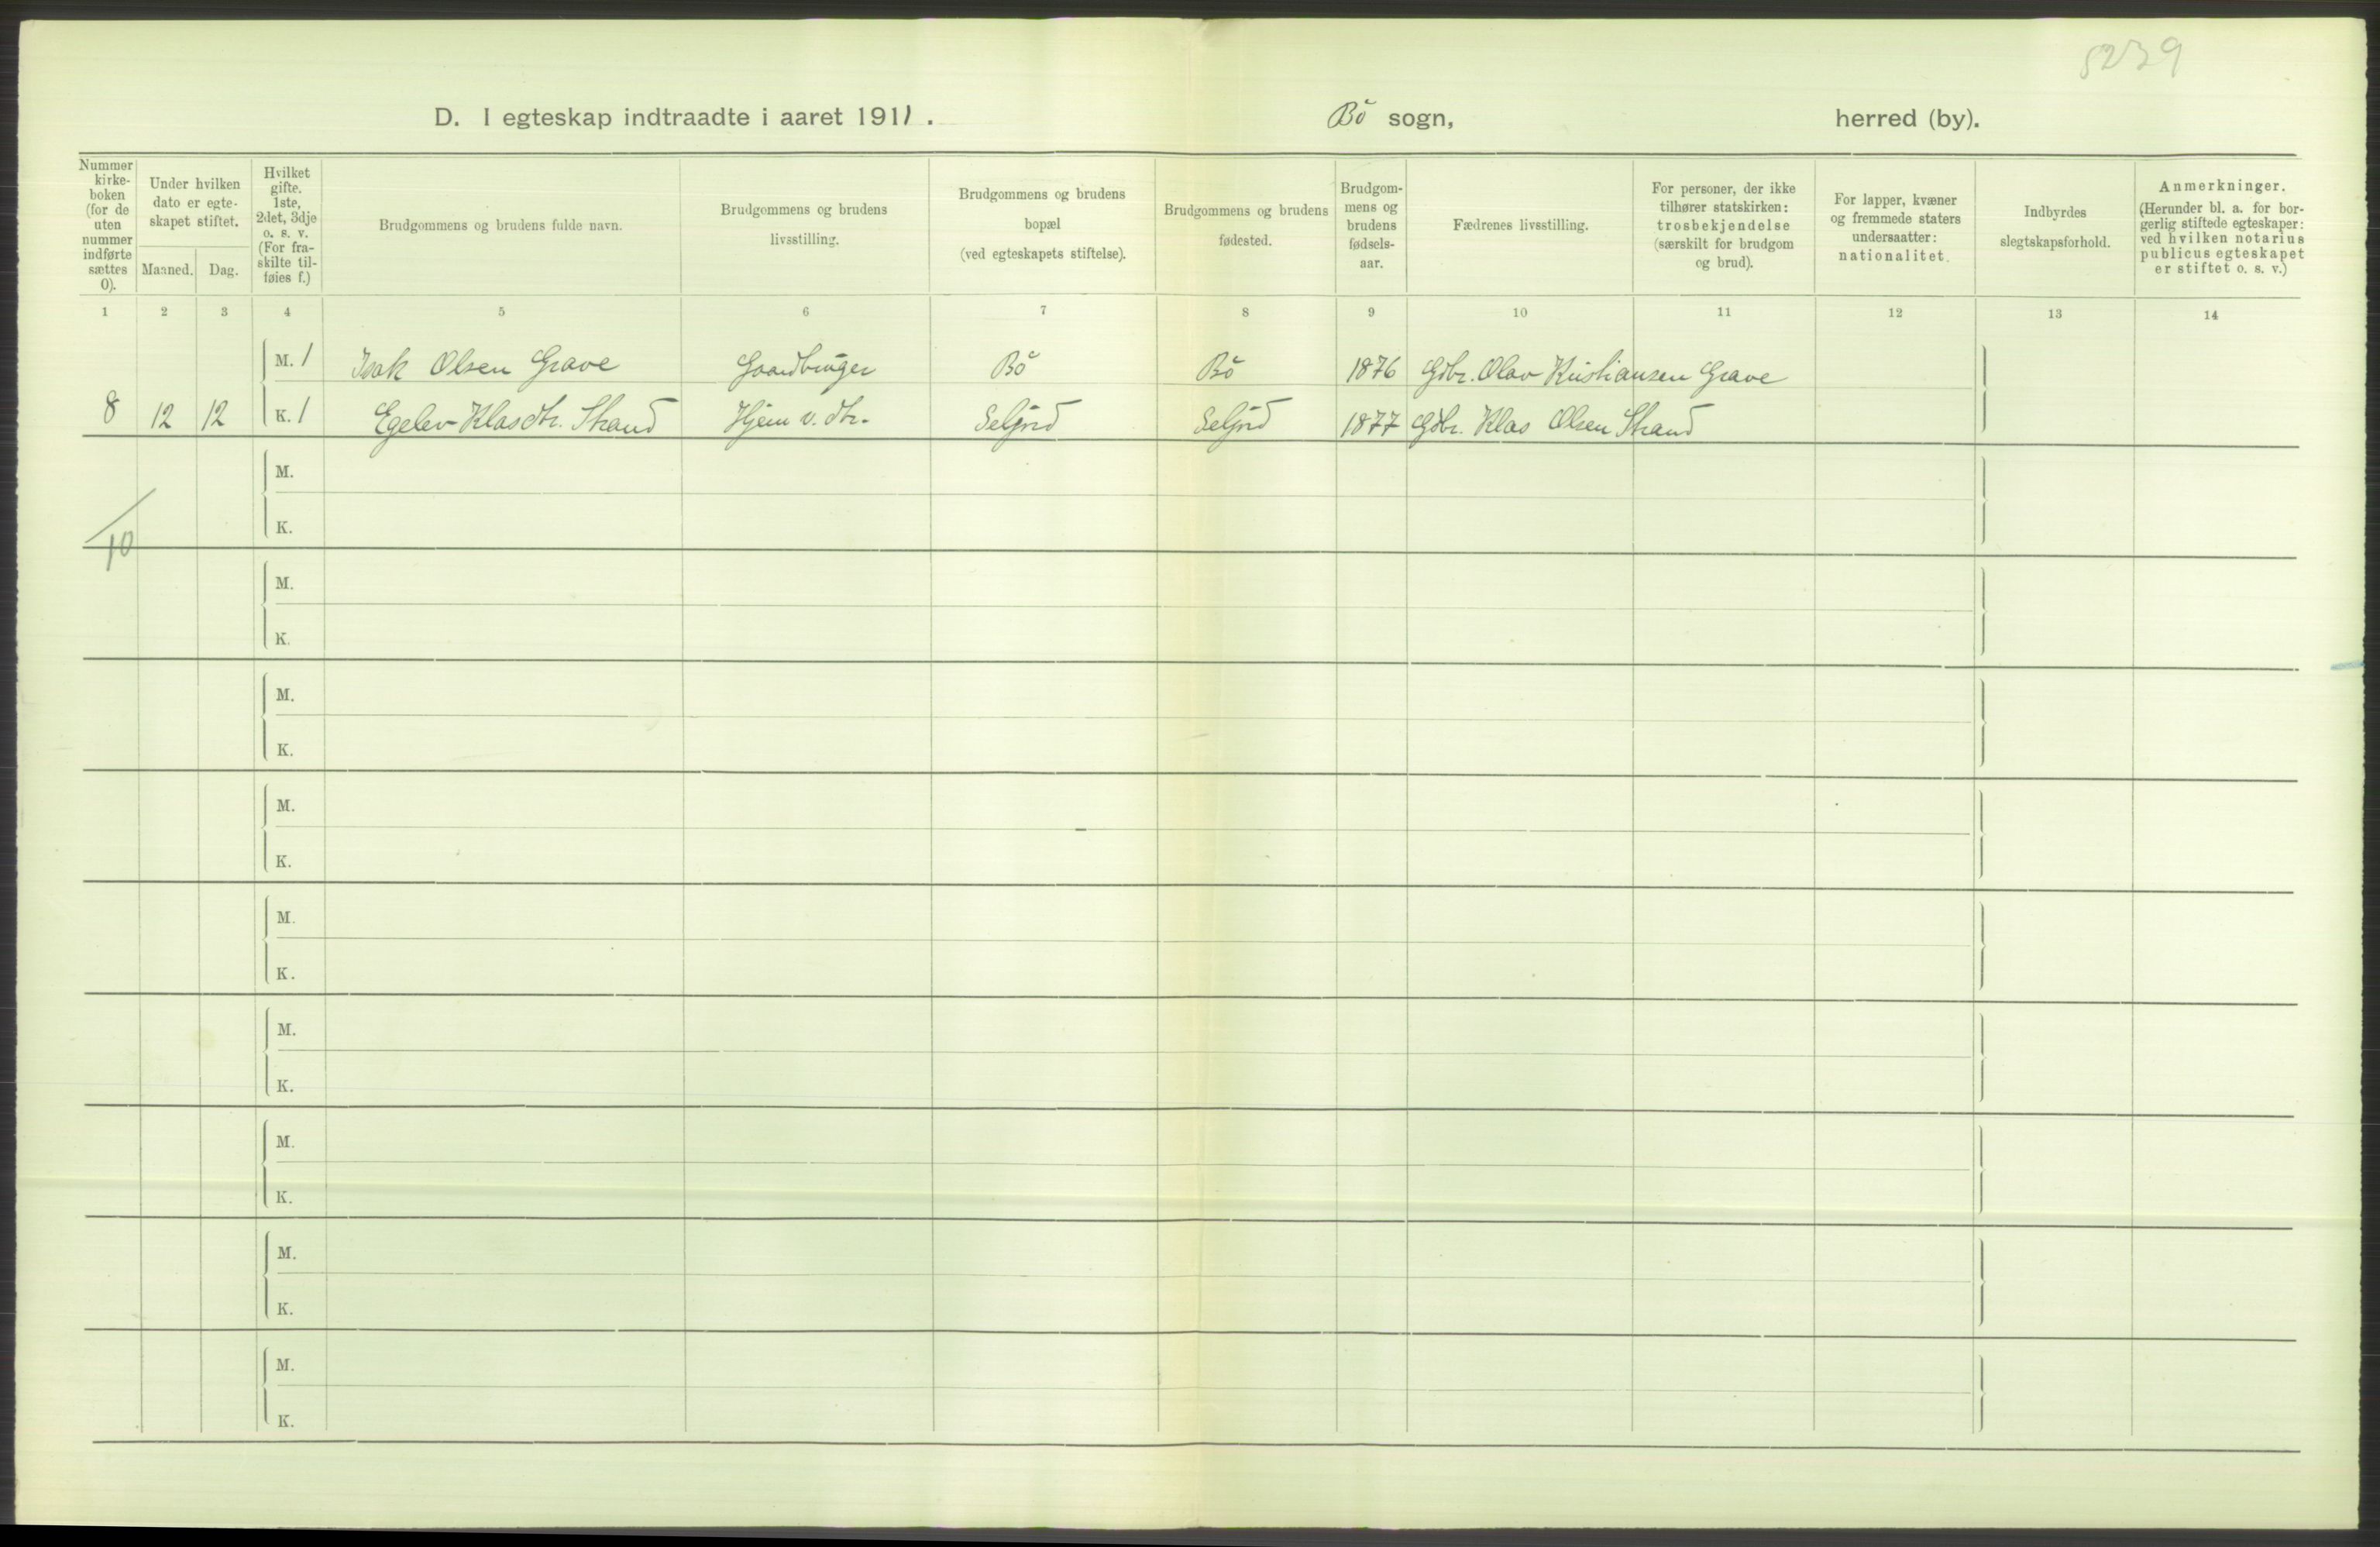 5239
D. I egteskap indtraadte i aaret 1911. Bö sogn, herred (by).
Nummer kirke-boken (for de uten nummer indførte sættes 0).
Under hvilken dato er egte-skapet stiftet.
Maaned. Dag.
Hvilket gifte. 1ste, 2det, 3dje o. s. v. (For fra-skilte til-føies f.)
Brudgommens og brudens fulde navn.
Brudgommens og brudens livsstilling.
Brudgommens og brudens bopæl (ved egteskapets stiftelse).
Brudgommens og brudens fødested.
Brudgom-mens og brudens fødsels-aar.
Fædrenes livsstilling.
For personer, der ikke tilhører statskirken: trosbekjendelse (særskilt for brudgom og brud).
For lapper, kvæner og fremmede staters undersaatter: nationalitet.
Indbyrdes slegtskapsforhold.
Anmerkninger. (Herunder bl. a. for bor-gerlig stiftede egteskaper: ved hvilken notarius publicus egteskapet er stiftet o. s. v.)
1 2 3 4 5 6 7 8 9 10 11 12 13 14
M. 1 Isak Olsen Grave Gaardbruger Bö Bö 1876 Gdbr. Olav Kristiansen Grave
8 12 12 K. 1 Egelev Klasdtr. Strand Hjem v. dtr. Seljord Seljord 1877 Gdbr. Klas Olsen Strand
M.
K.
10
M.
K.
M.
K.
M.
K.
M.
K.
M.
K.
M.
K.
M.
K.
M.
K.